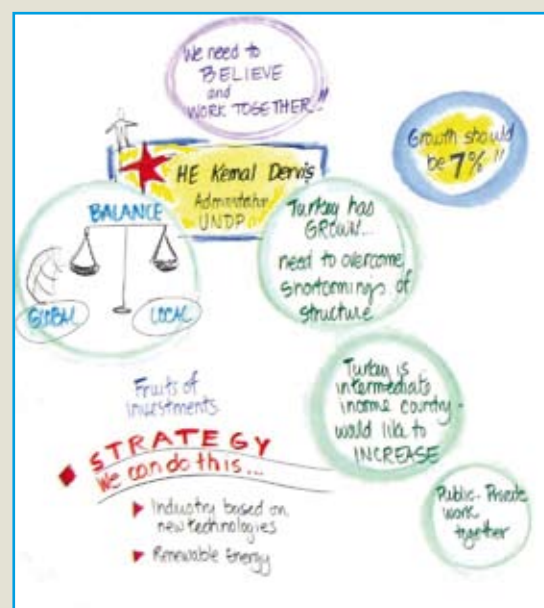 We need to
BELIEVE
and
WORK TOGETHER!!
Growth should
be 7%!!
HE Kemal Derviş
Administrator
UNDP
BALANCE
GLOBAL
LOCAL
Turkey has
GROWN...
need to overcome
shortcomings of
structure
Turkey is
intermediate
income country -
would like to
INCREASE
Fruits of
investments
STRATEGY
We can do this...
Industry based on
new technologies
Renewable Energy
Public-Private
work
together